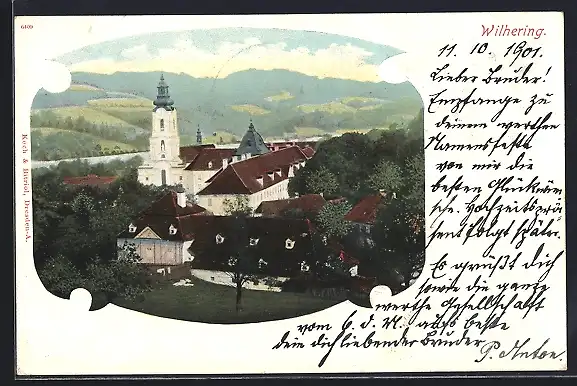 6109
Wilhering.
Koch & Bitriol, Dresden-A.
11. 10. 1901.
Lieber Bruder!
Empfange zu
deinem werthen
Namensfeste
von mir die
besten Glückwün
sche. Hochzeitsprä
sent folgt spätr.
Es grüßt dich
sowie die ganze
werthe Gesellschaft
vom 6. d. M. aufs beste
dein dich liebender Bruder
P. Anton.